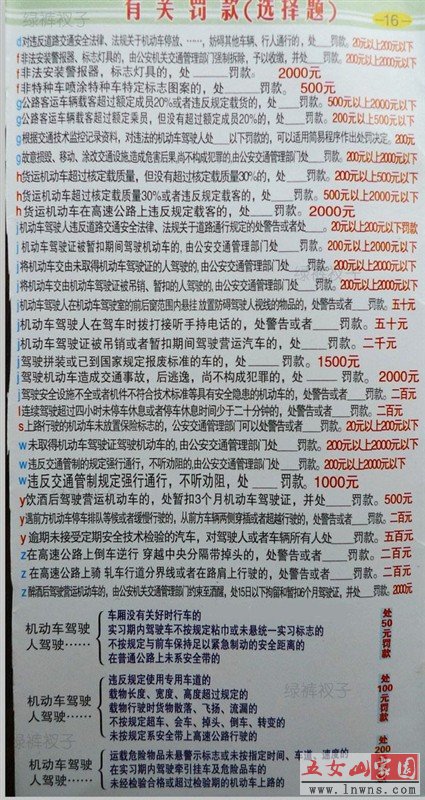 有关罚款(选择题)
—16—
d对违反道路交通安全法律、法规关于机动车停放、……,妨碍其他车辆、行人通行的,处___罚款。20元以上200元以下
f非法安装警报器、标志灯具的,由公安机关交通管理部门强制拆除,予以收缴,并处___罚款。200元以上2000元以下
f非法安装警报器,标志灯具的,处___罚款。2000元
f非特种车喷涂特种车特定标志图案的,处___罚款。500元
g公路客运车辆载客超过额定成员20%或者违反规定载货的,处___罚款。500元以上2000元以下
g公路客运车辆载客超过额定乘员,但没有超过额定成员20%的,处___罚款。200元以上500元以下
g根据交通技术监控记录资料,对违法的机动车驾驶人处___以下罚款的,可以适用简易程序作出处罚决定。200元
g故意损毁、移动、涂改交通设施,造成危害后果,尚不构成犯罪的,由公安交通管理部门处___罚款。200元以上2000元以下
h货运机动车超过核定载质量,但没有超过核定载质量30%的,处___罚款。200元以上500元以下
h货运机动车超过核定载质量30%或者违反规定载客的,处___罚款。500元以上2000元以下
h货运机动车在高速公路上违反规定载客的,处___罚款。2000元
j机动车驾驶人违反道路交通安全法律、法规关于道路通行规定的处警告或者处___。20元以上200元以下罚款
j机动车驾驶证被暂扣期间驾驶机动车的,由公安交通管理部门处___罚款。200元以上2000元以下
j将机动车交由未取得机动车驾驶证的人驾驶的,由公安交通管理部门处___罚款。200元以上2000元以下
j将机动车交由机动车驾驶证被吊销、暂扣的人驾驶的,由公安交通管理部门处___罚款。200元以上2000元以下
j机动车驾驶人在机动车驾驶室的前后窗范围内悬挂 放置防碍驾驶人视线的物品的,处警告或者___罚款。五十元
j机动车驾驶人在驾车时拨打接听手持电话的,处警告或者___罚款。五十元
j机动车驾驶证被吊销或者暂扣期间驾驶营运汽车的,处___罚款。二千元
j驾驶拼装或已到国家规定报废标准的车的,处___罚款。1500元
j驾驶机动车造成交通事故,后逃逸,尚不构成犯罪的,处___罚款。2000元
j驾驶安全设施不全或者机件不符合技术标准等具有安全隐患的机动车的,处警告或者___罚款。二百元
l连续驾驶超过四小时未停车休息或者停车休息时间少于二十分钟的,处警告或者___罚款。二百元
s上路行驶的机动车未放置保险标志的,公安交通管理部门可以处警告或者___罚款。20元以上200元以下
w未取得机动车驾驶证驾驶机动车的,由公安交通管理部门处___罚款。200元以上2000元以下
w违反交通管制的规定强行通行,不听劝阻的,由公安交通管理部门处___罚款。200元以上2000元以下
w违反交通管制规定强行通行,不听劝阻,处___罚款。1000元
y饮酒后驾驶营运机动车的,处暂扣3个月机动车驾驶证,并处___罚款。500元
y遇前方机动车停车排队等候或者缓慢行驶的,从前方车辆两侧穿插或者超越行驶的,处警告或者___罚款。二百元
y逾期未接受定期安全技术检验的汽车,对驾驶人或者车辆所有人处___罚款。五百元
z在高速公路上倒车逆行 穿越中央分隔带掉头的,处警告或者___罚款。二百元
z在高速公路上骑 轧车行道分界线或者在路肩上行驶的,处警告或者___罚款。二百元
z醉酒后驾驶营运机动车的,由公安机关交通管理部门约束至酒醒,处15日以下拘留和暂扣6个月驾驶证,并处___罚款。2000元
机动车驾驶人驾驶……
车厢没有关好时行车的
实习期内驾驶车不按规定粘巾或未悬统一实习标志的
不按规定与前车保持足以紧急制动的安全距离的
在普通公路上未系安全带的
处50元罚款
机动车驾驶人驾驶……
违反规定使用专用车道的
载物长度、宽度、高度超过规定的
载物行驶时货物散落、飞扬、流漏的
不按规定超车、会车、掉头、倒车、转变的
未按规定系安全带上高速公路行驶的
处100元罚款
机动车驾驶人驾驶……
运载危险物品未悬警示标志或未按指定时间、车道、速度的
在实习期内驾驶牵引挂车及危险品车的
未经检验合格或超过检验期的机动车上路的
处200
绿裤衩子
五女山家园
www.lnwns.com